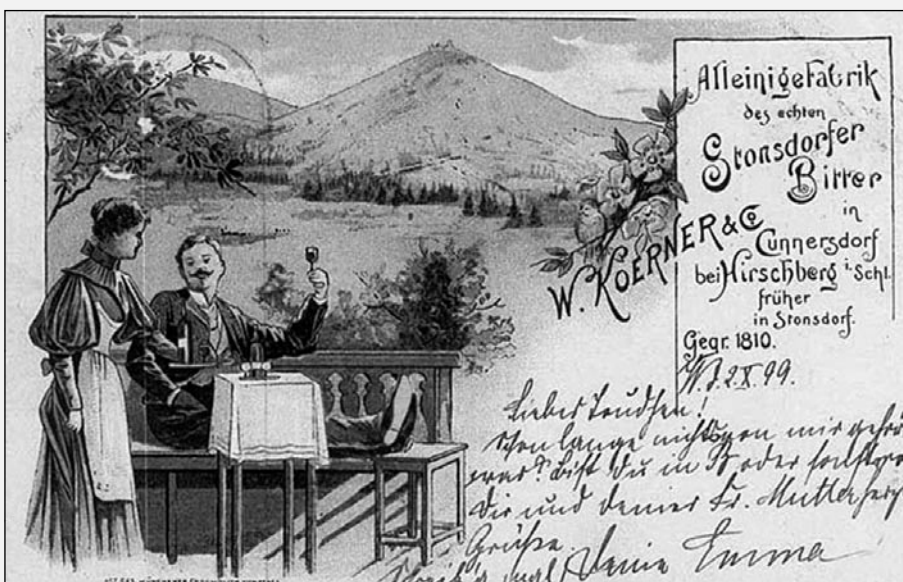 Alleinige Fabrik
des echten
Stonsdorfer
Bitter
in
Cunnersdorf
bei Hirschberg i. Schl.
früher
in Stonsdorf.
Gegr. 1810.
W. KOERNER & Co
2.X.99.
Liebes Trudchen!
Schon lange nichts von mir gehört
was? Bist Du in oder
Dir und Deiner Fr. Mutter herzl.
Grüße
mal Deine Emma